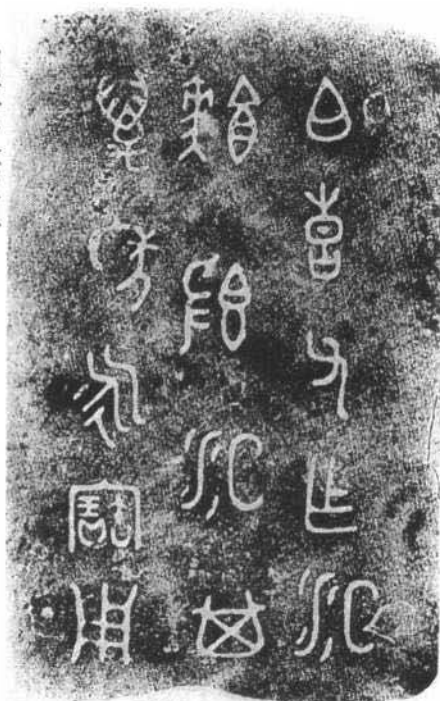 白喜父乍洹
饙𣪘洹其
萬年永寶用